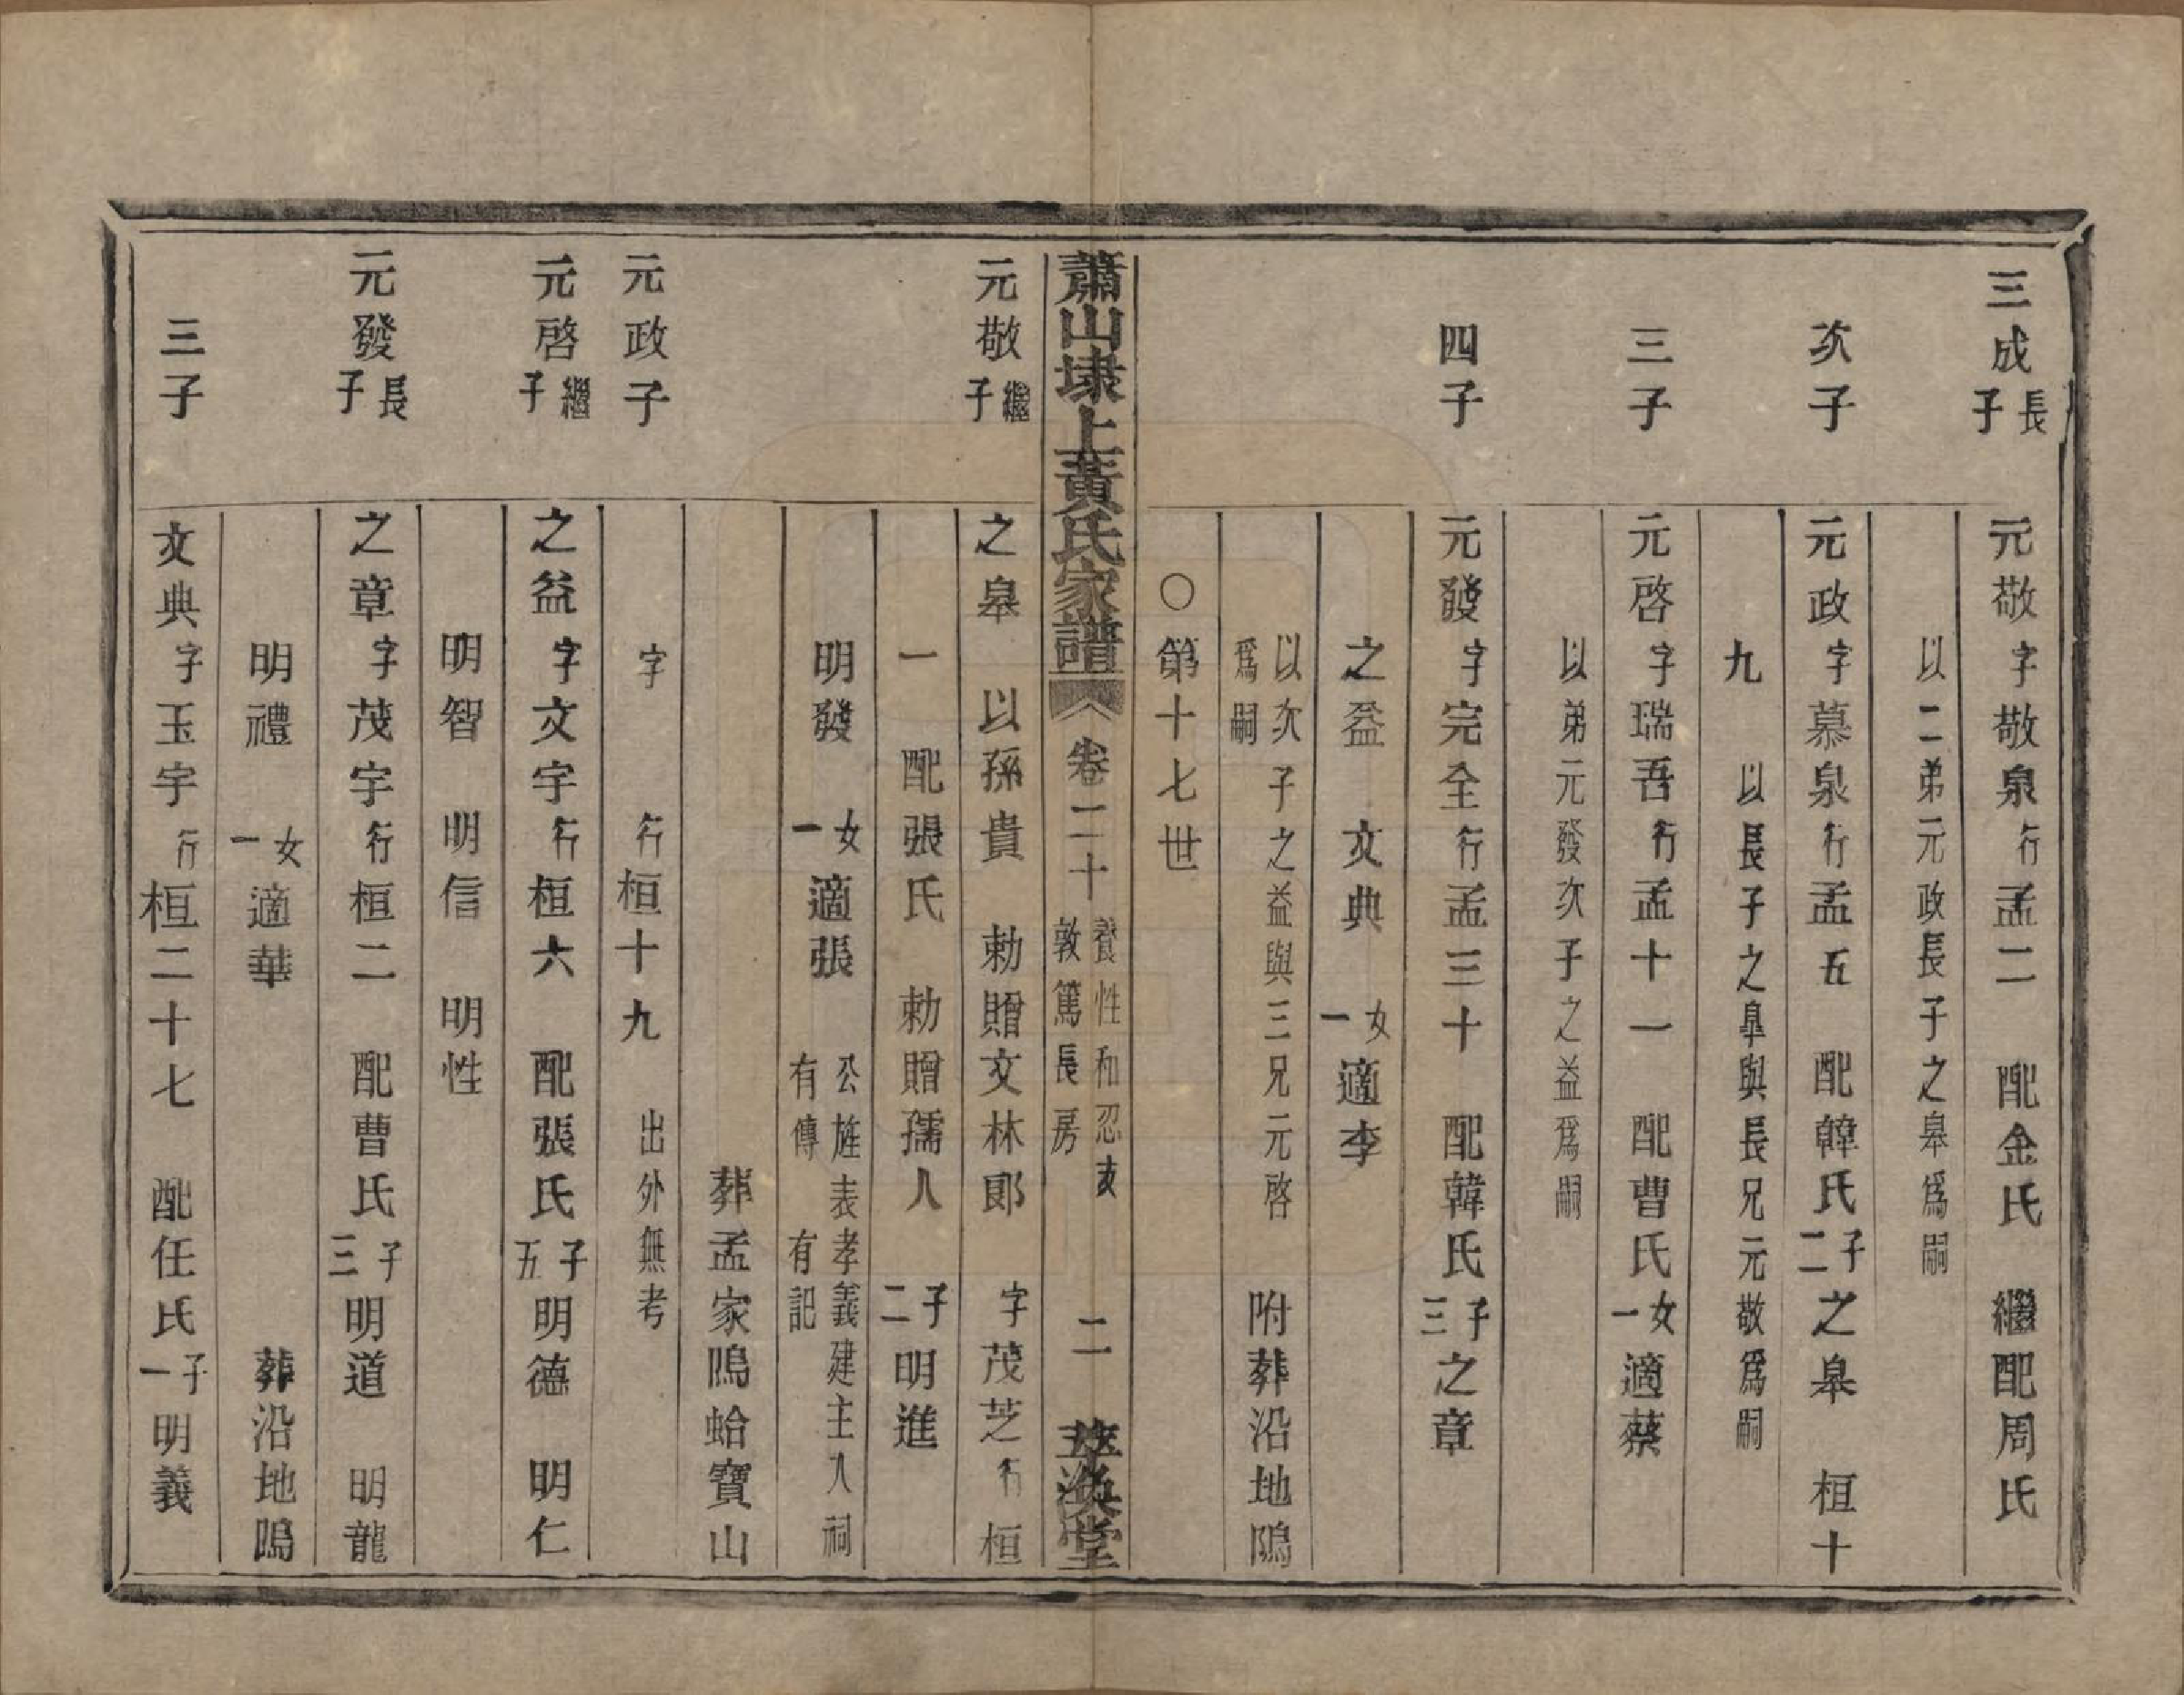 三成長子
元敬字敬泉行孟二　配金氏　繼配周氏
以二弟元政長子之皋爲嗣
次子
元政字慕泉行孟五　配韓氏二子之皋　桓十
九　以長子之皐與長兄元敬爲嗣
三子
元啓字瑞吾行孟十一　配曹氏一女適蔡
以弟元發次子之益爲嗣
四子
元發字完全行孟三十　配韓氏三子之章
之益　文典　一女適李
以次子之益與三兄元啓
爲嗣
附葬沿地隝
○第十七世
蕭山埭上黃氏家譜　卷二十　養性和忍支　敦篤長房　二　萃渙堂
元敬繼子
之皋　以孫貴　勅贈文林郎　字茂芝行桓
一　配張氏　勅贈孺人　二子明進
明發　一女適張　公旌表孝義建主入祠
有傳　有記
葬孟家隝蛤寶山
元政子
字　行桓十九　出外無考
元啓繼子
之益字文宇行桓六　配張氏五子明德　明仁
明智　明信　明性
元發長子
之章字茂宇行桓二　配曹氏三子明道　明龍
明禮　一女適華　葬沿地隝
三子
文典字玉宇行桓二十七　配任氏一子明義